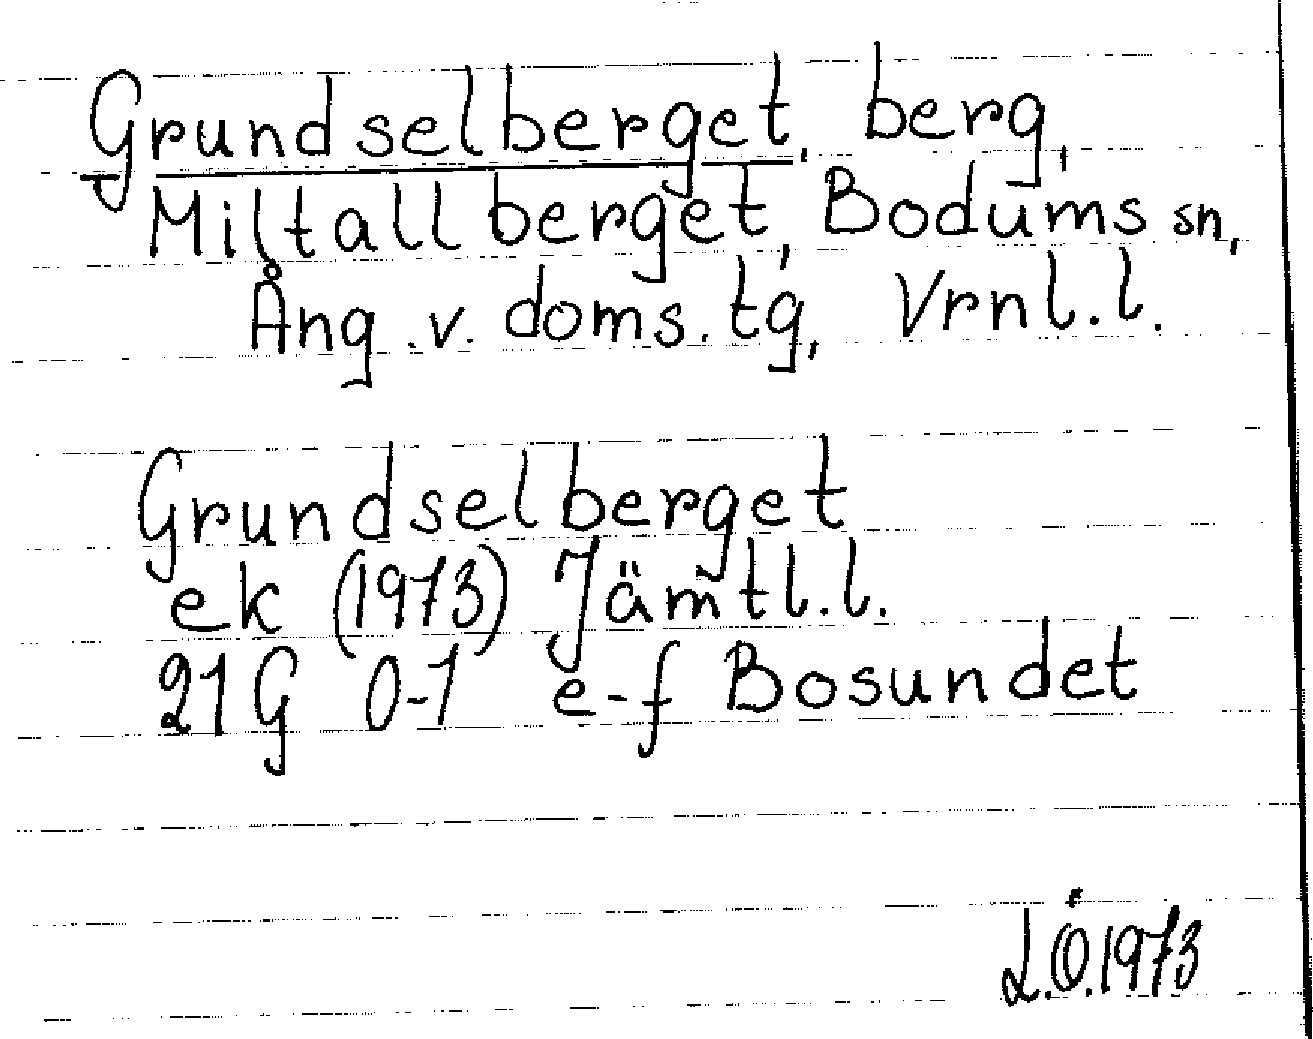 Grundselberget, berg,
Miltallberget, Bodums sn,
Ång. v. doms. tg, Vrnl. l.
Grundselberget
ek (1973) Jämtl. l.
21G 0-1 e-f Bosundet
L.Ö. 1973